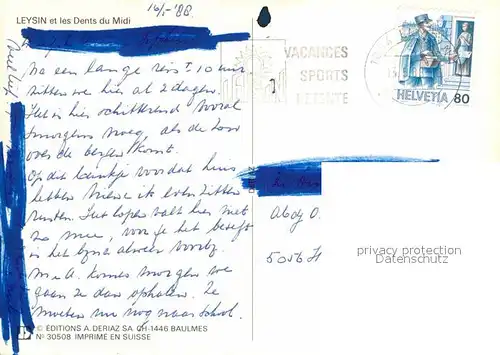 16/5-'88.
LEYSIN et les Dents du Midi
Na een lange reis ± 10 uur
zitten we hier al 2 dagen.
Het is hier schitterend vooral
smorgens vroeg, als de zon
over de bergen komt.
Op dit bankje voor dat huis
letten we ik even zitten
rusten. Het lopen valt hier niet
zo mee, voor je het beseft
is het bijna alweer voorbij.
M. en A. komen morgen we
gaan ze dan ophalen. Ze
moeten nu nog naar school.
VACANCES
SPORTS
DETENTE
HELVETIA 80
5056
privacy protection
Datenschutz
© EDITIONS A. DERIAZ SA CH-1446 BAULMES
No 30508 IMPRIMÉ EN SUISSE